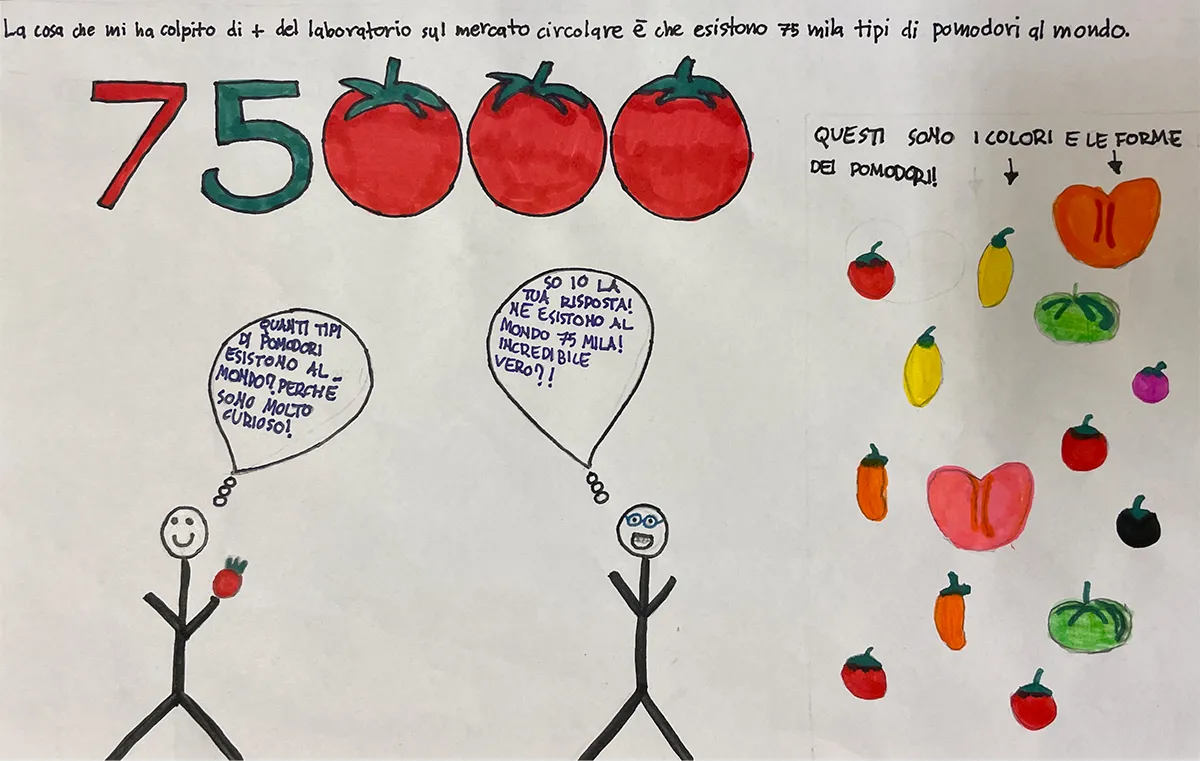 La cosa che mi ha colpito di + del laboratorio sul mercato circolare ē che esistono 75 mila tipi di pomodori al mondo.
75000
QUESTI SONO I COLORI E LE FORME
DEI POMODORI!
QUANTI TIPI
DI POMODORI
ESISTONO AL
MONDO? PERCHĒ
SONO MOLTO
CURIOSO!
SO IO LA
TUA RISPOSTA!
NE ESISTONO AL
MONDO 75 MILA!
INCREDIBILE
VERO?!